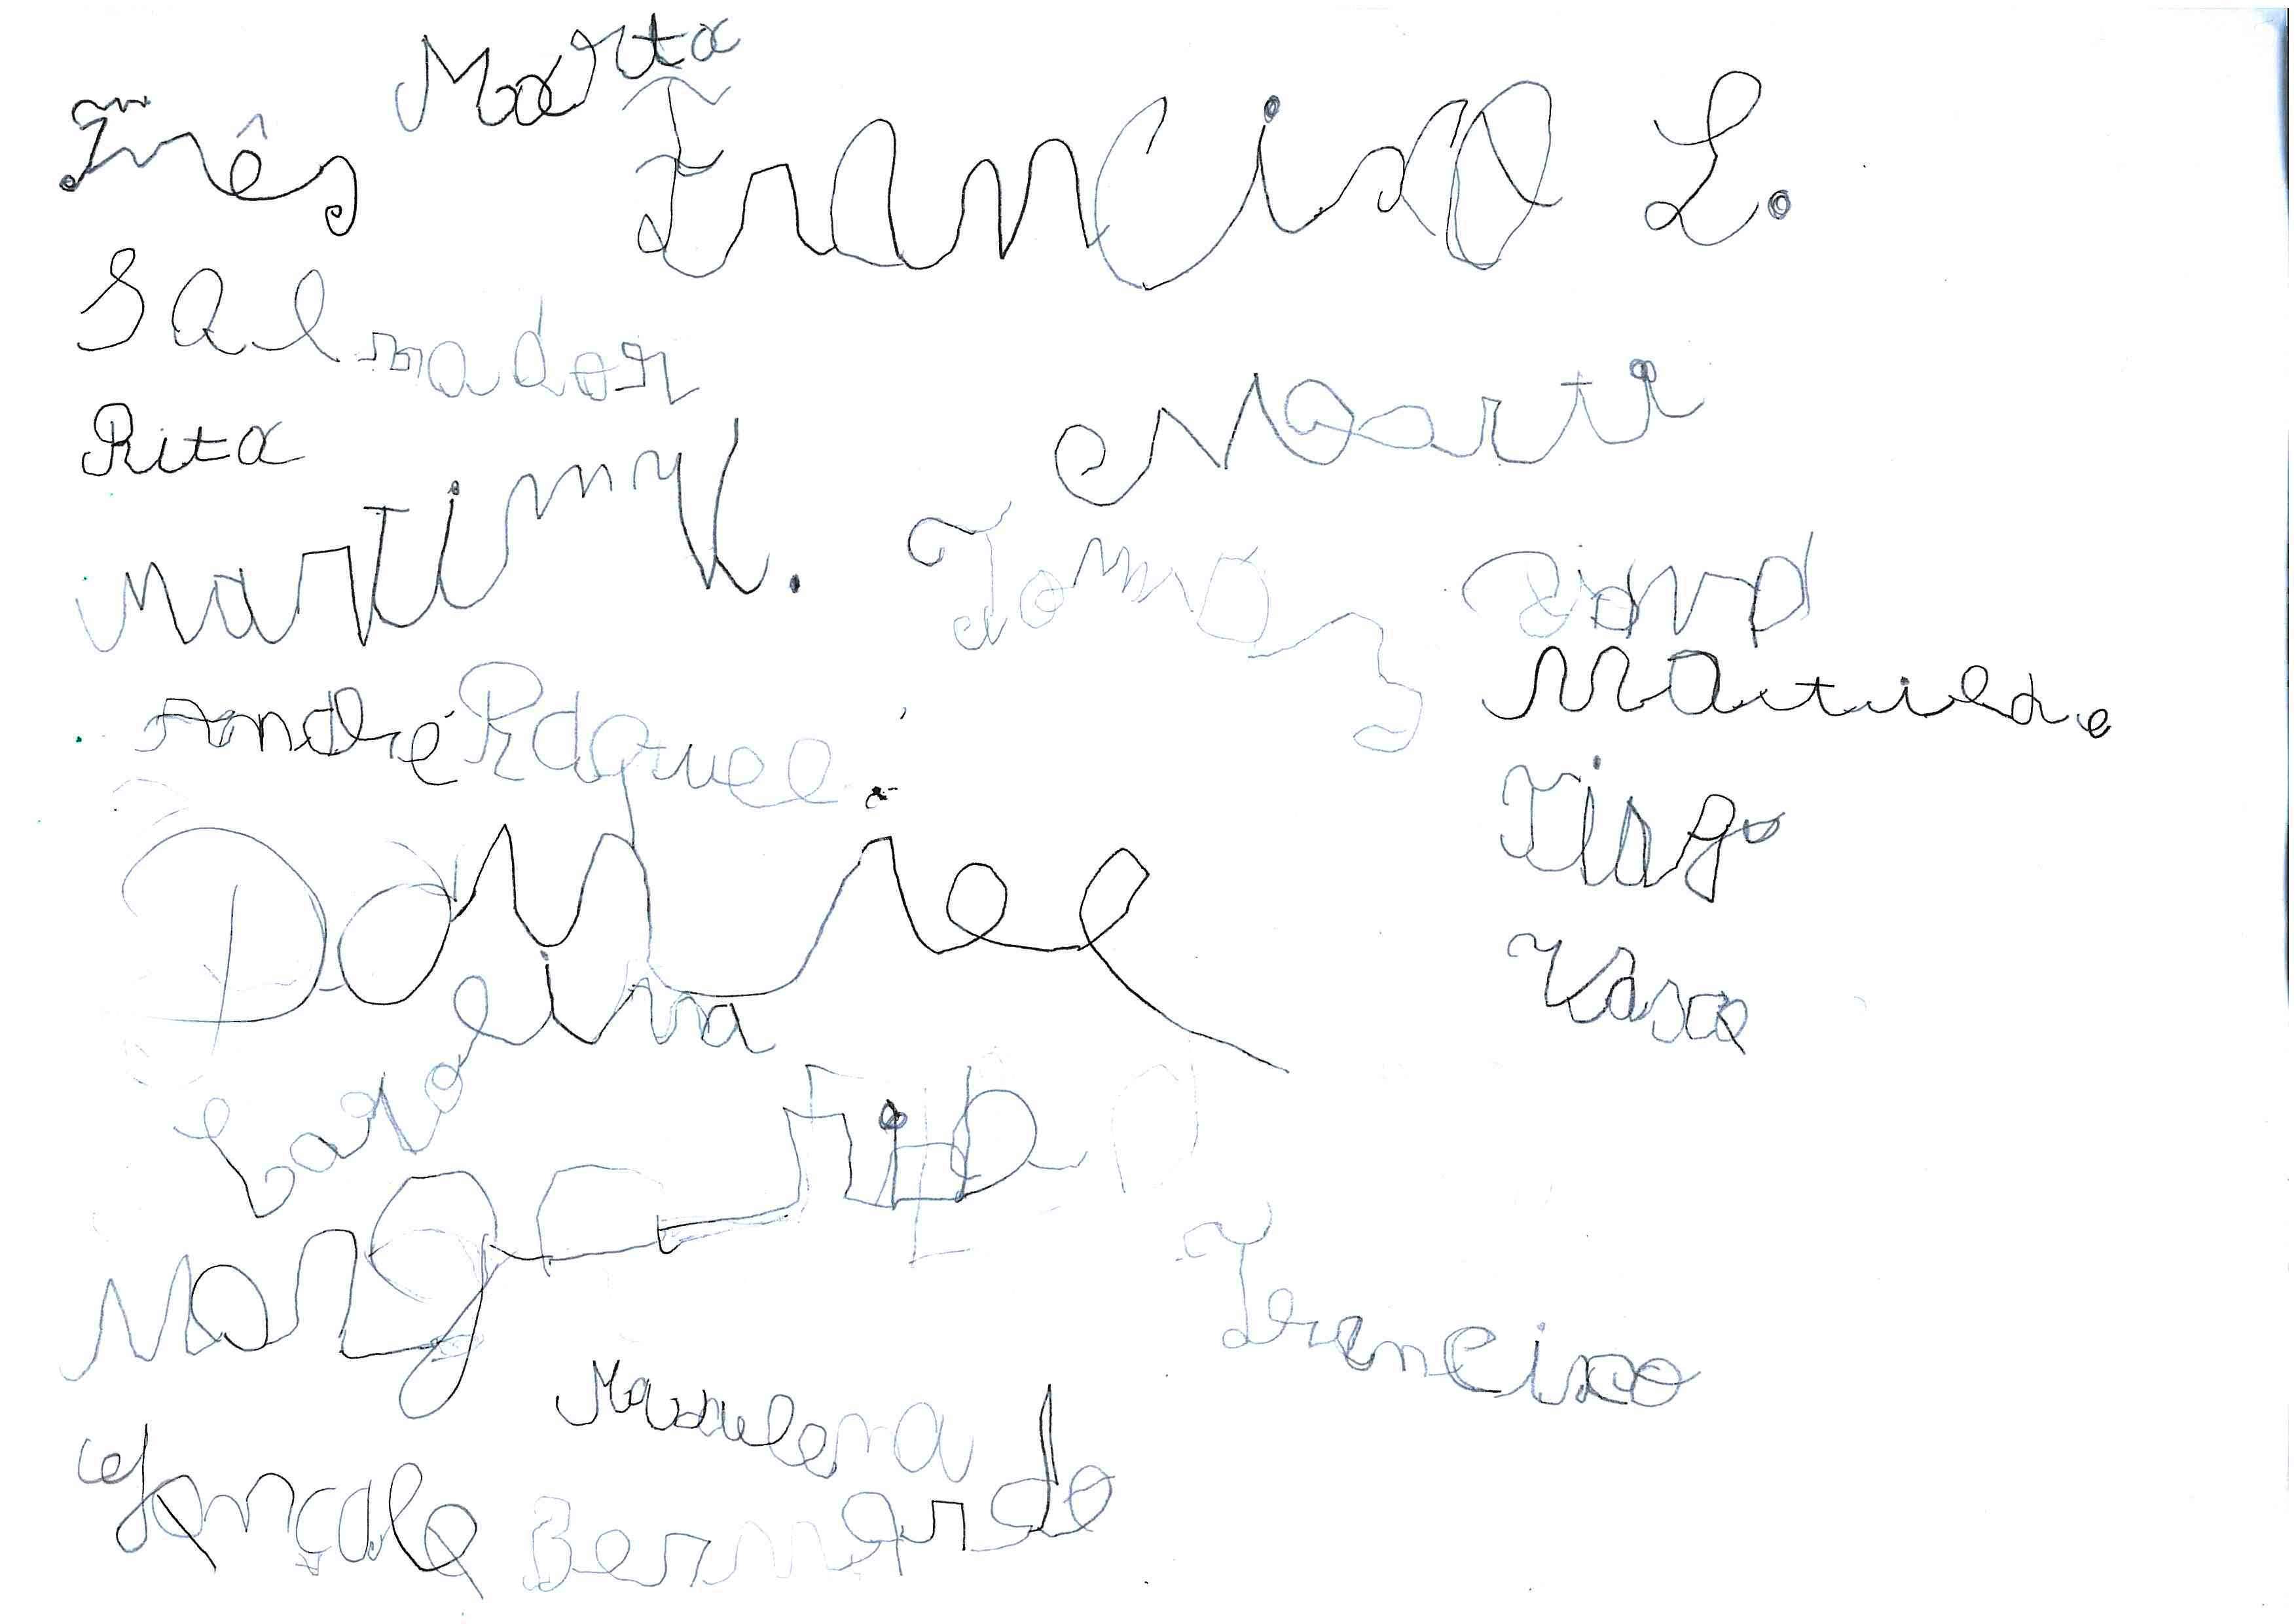 Marta
Inês
Francisco L.
Salvador
Rita
Marti
Martim V.
Tomás
David
Matilde
André
Raquel
Tiago
Daniel
Vasco
Carolina
Margarida
Francisco
Madalena
Gonçalo
Bernardo